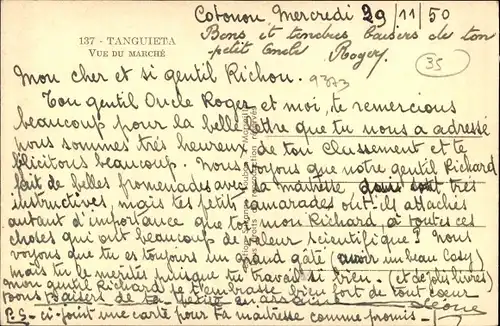 Cotonou Mercredi 29/11/50
137 - TANGUIETA
VUE DU MARCHÉ
Bons et tendres baisers de ton
petit Oncle
Roger
35
Mon cher et si gentil Richou.
9373
Ton gentil Oncle Roger et moi, te remercions
beaucoup pour la belle lettre que tu nous a adressé
nous sommes très heureux de ton classement et te
félicitons beaucoup. Nous voyons que notre gentil Richard
fait de belles promenades avec la maîtresse dans sont très
instructives, mais tes petits camarades ont-ils attachés
autant d'importance que toi mon Richard, à toutes ces
choses qui ont beaucoup de valeur scientifique? Nous
voyons que tu es toujours un grand gâté (avoir un beau Cosy)
mais tu le mérites puisque tu travail si bien. (et de plus livres)
mon gentil Richard je t'embrasse bien fort de tout cœur
bons baisers de ta
P.S - ci-joint une carte pour ta maîtresse comme promis -